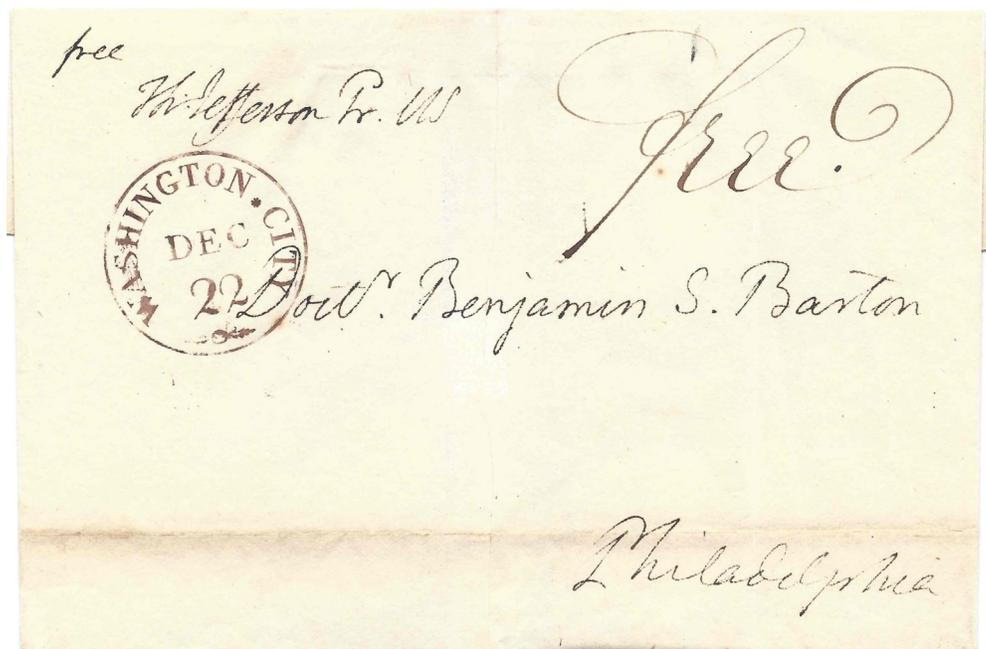 free
Th: Jefferson Pr. US
free.
WASHINGTON . CITY
DEC
22
Doctr. Benjamin S. Barton
Philadelphia